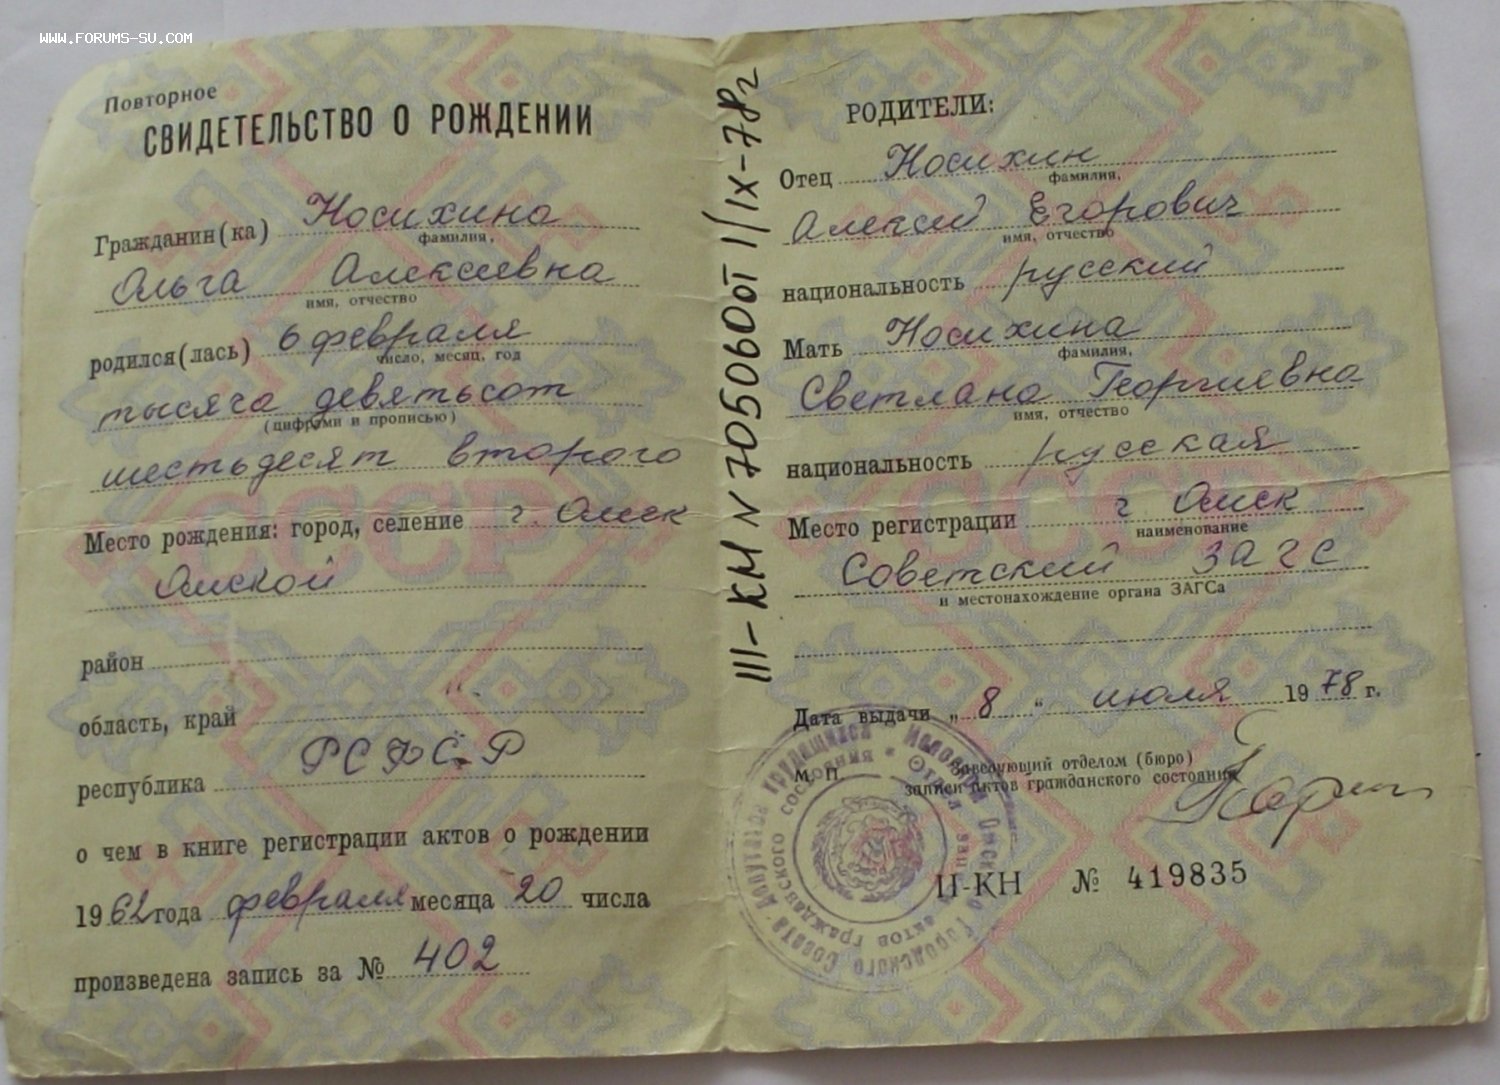 WWW.FORUMS-SU.COM
Повторное
СВИДЕТЕЛЬСТВО О РОЖДЕНИИ
Гражданин(ка) Носихина
фамилия,
Ольга Алексеевна
имя, отчество
родился(лась) 6 февраля
число, месяц, год
тысяча девятьсот
(цифрами и прописью)
шестьдесят второго
Место рождения: город, селение г. Омск
Омской
район
область, край
республика РСФСР
о чем в книге регистрации актов о рождении
1962 года февраля месяца 20 числа
произведена запись за № 402
III-КМ N 705060 от 1/IX-78г
РОДИТЕЛИ:
Отец Носихин
фамилия,
Алексей Егорович
имя, отчество
национальность русский
Мать Носихина
фамилия,
Светлана Георгиевна
имя, отчество
национальность русская
Место регистрации г Омск
наименование
Советский ЗАГС
и местонахождение органа ЗАГСа
Дата выдачи „ 8 “ июля 1978 г.
М. П. Заведующий отделом (бюро)
записи актов гражданского состояния
II-КН № 419835
СССР
СССР